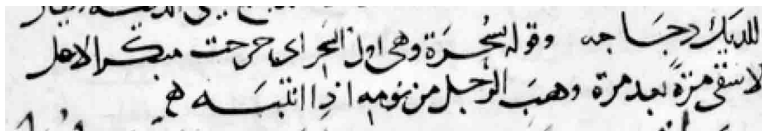 للديك دجاجه وقوله بسحرة وهى اول السحر اى خرجت مبكرا لاعل
لاستقى مرة بعد مرة وهب الرجل من نومه اذا انتبه